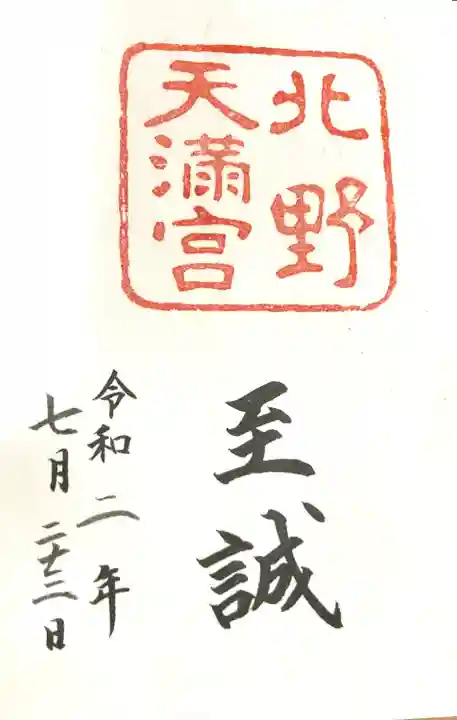 北野
天満宮
至誠
令和二年
七月二十三日